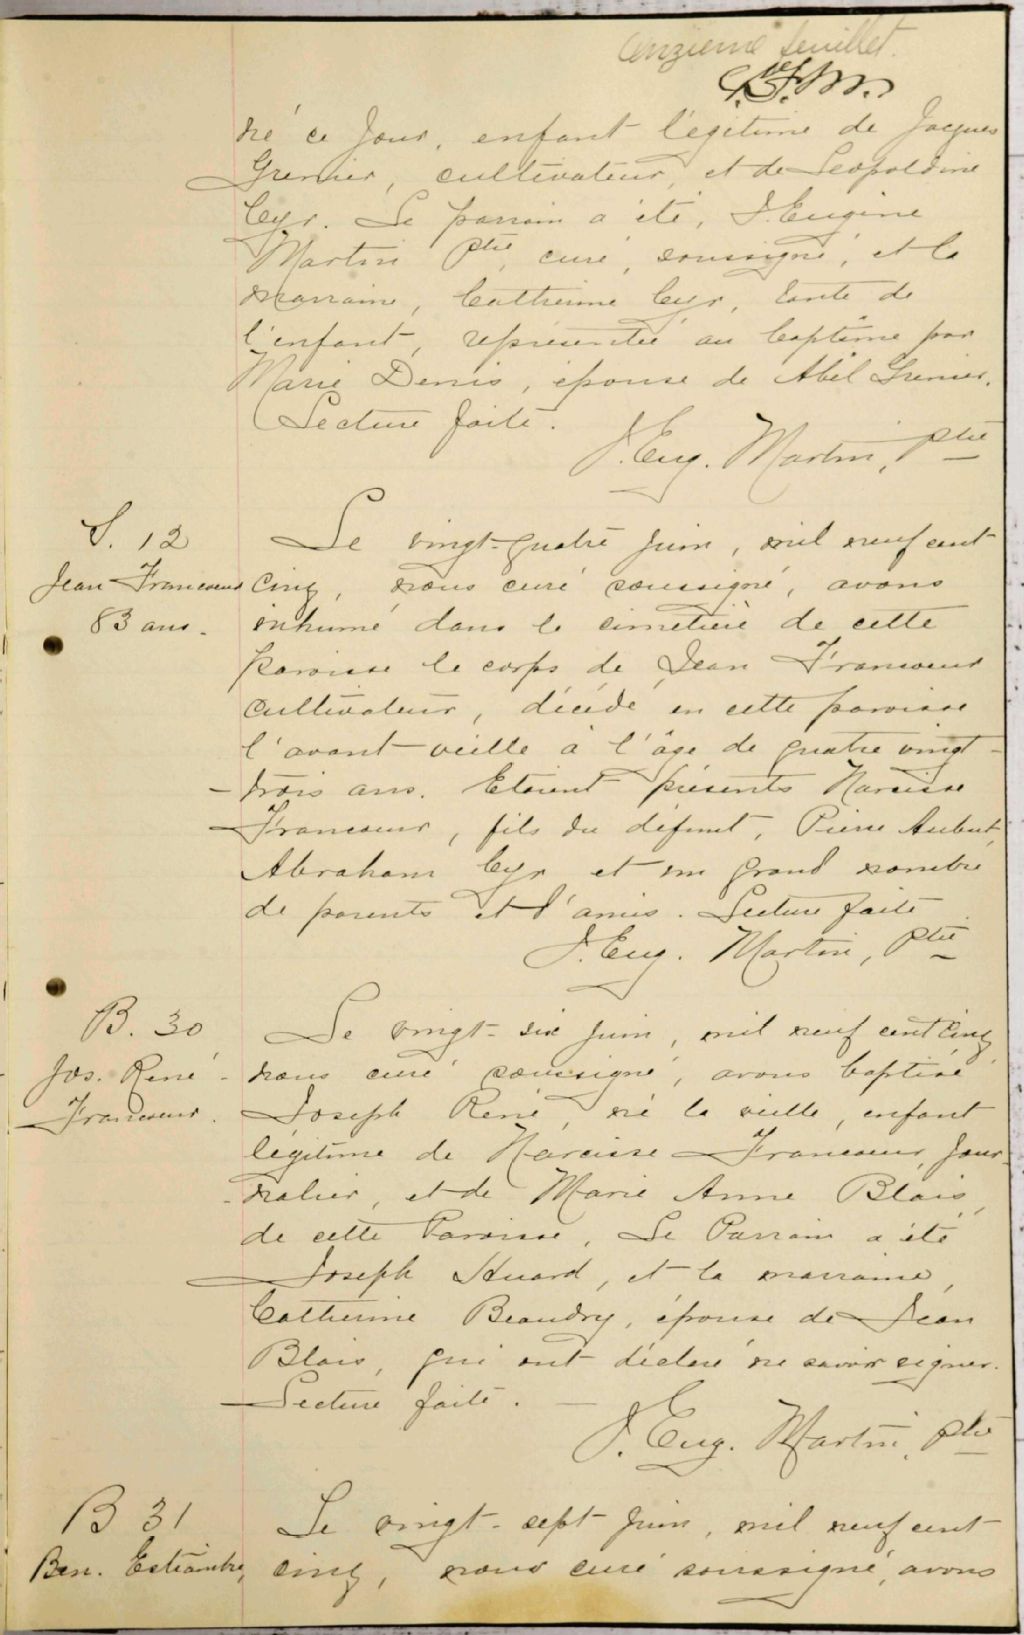 onzieme feuillet.
né ce jour, enfant légitime de Jacques
Grenier, cultivateur, et de Leopoldine
Cyr. Le parrain a été, J. Eugène
Martin Ptre, curé, soussigné, et la
marraine, Catherine Cyr, tante de
l'enfant, représentée au baptême par
Marie Denis, épouse de Abel Grenier.
Lecture faite.
J. Eug. Martin, Ptre
S. 12
Jean Francoeur
83 ans.
Le vingt-quatre juin, mil neuf cent
cinq, nous curé soussigné, avons
inhumé dans le cimetière de cette
paroisse le corps de Jean Francoeur
cultivateur, décédé en cette paroisse
l'avant-veille à l'âge de quatre vingt-
-trois ans. Etaient présents Narcisse
Francoeur, fils du défunt, Pierre Aubut,
Abraham Cyr et un grand nombre
de parents et d'amis. Lecture faite
J. Eug. Martin, Ptre
B. 30
Jos. René
Francoeur.
Le vingt-six juin, mil neuf cent cinq
nous curé soussigné, avons baptisé
Joseph René, né la veille, enfant
légitime de Narcisse Francoeur, jour-
-nalier, et de Marie Anne Blais,
de cette Paroisse. Le Parrain a été
Joseph Huard, et la marraine,
Catherine Beaudry, épouse de Jean
Blais, qui ont déclaré ne savoir signer.
Lecture faite. —
J. Eug. Martin, Ptre
B 31
Ben. Estiambre,
Le vingt-sept juin, mil neuf cent
cinq, nous curé soussigné, avons